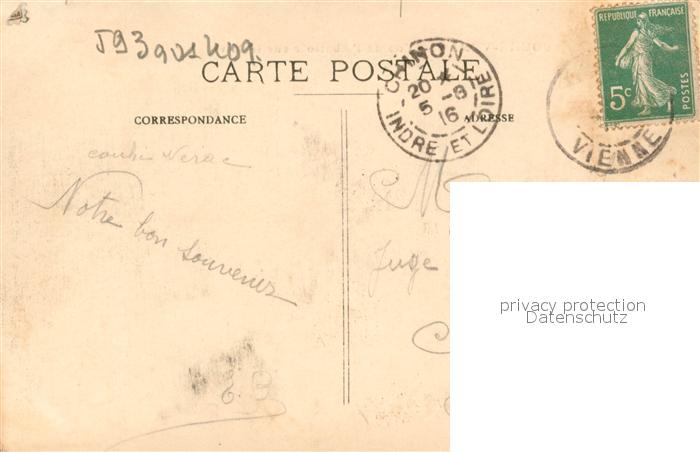 593901409
CARTE POSTALE
CORRESPONDANCE
ADRESSE
CHINON
20
5 -8
16
INDRE ET LOIRE
REPUBLIQUE FRANÇAISE
5c
POSTES
VIENNE
Notre bon souvenir
Juge
privacy protection
Datenschutz